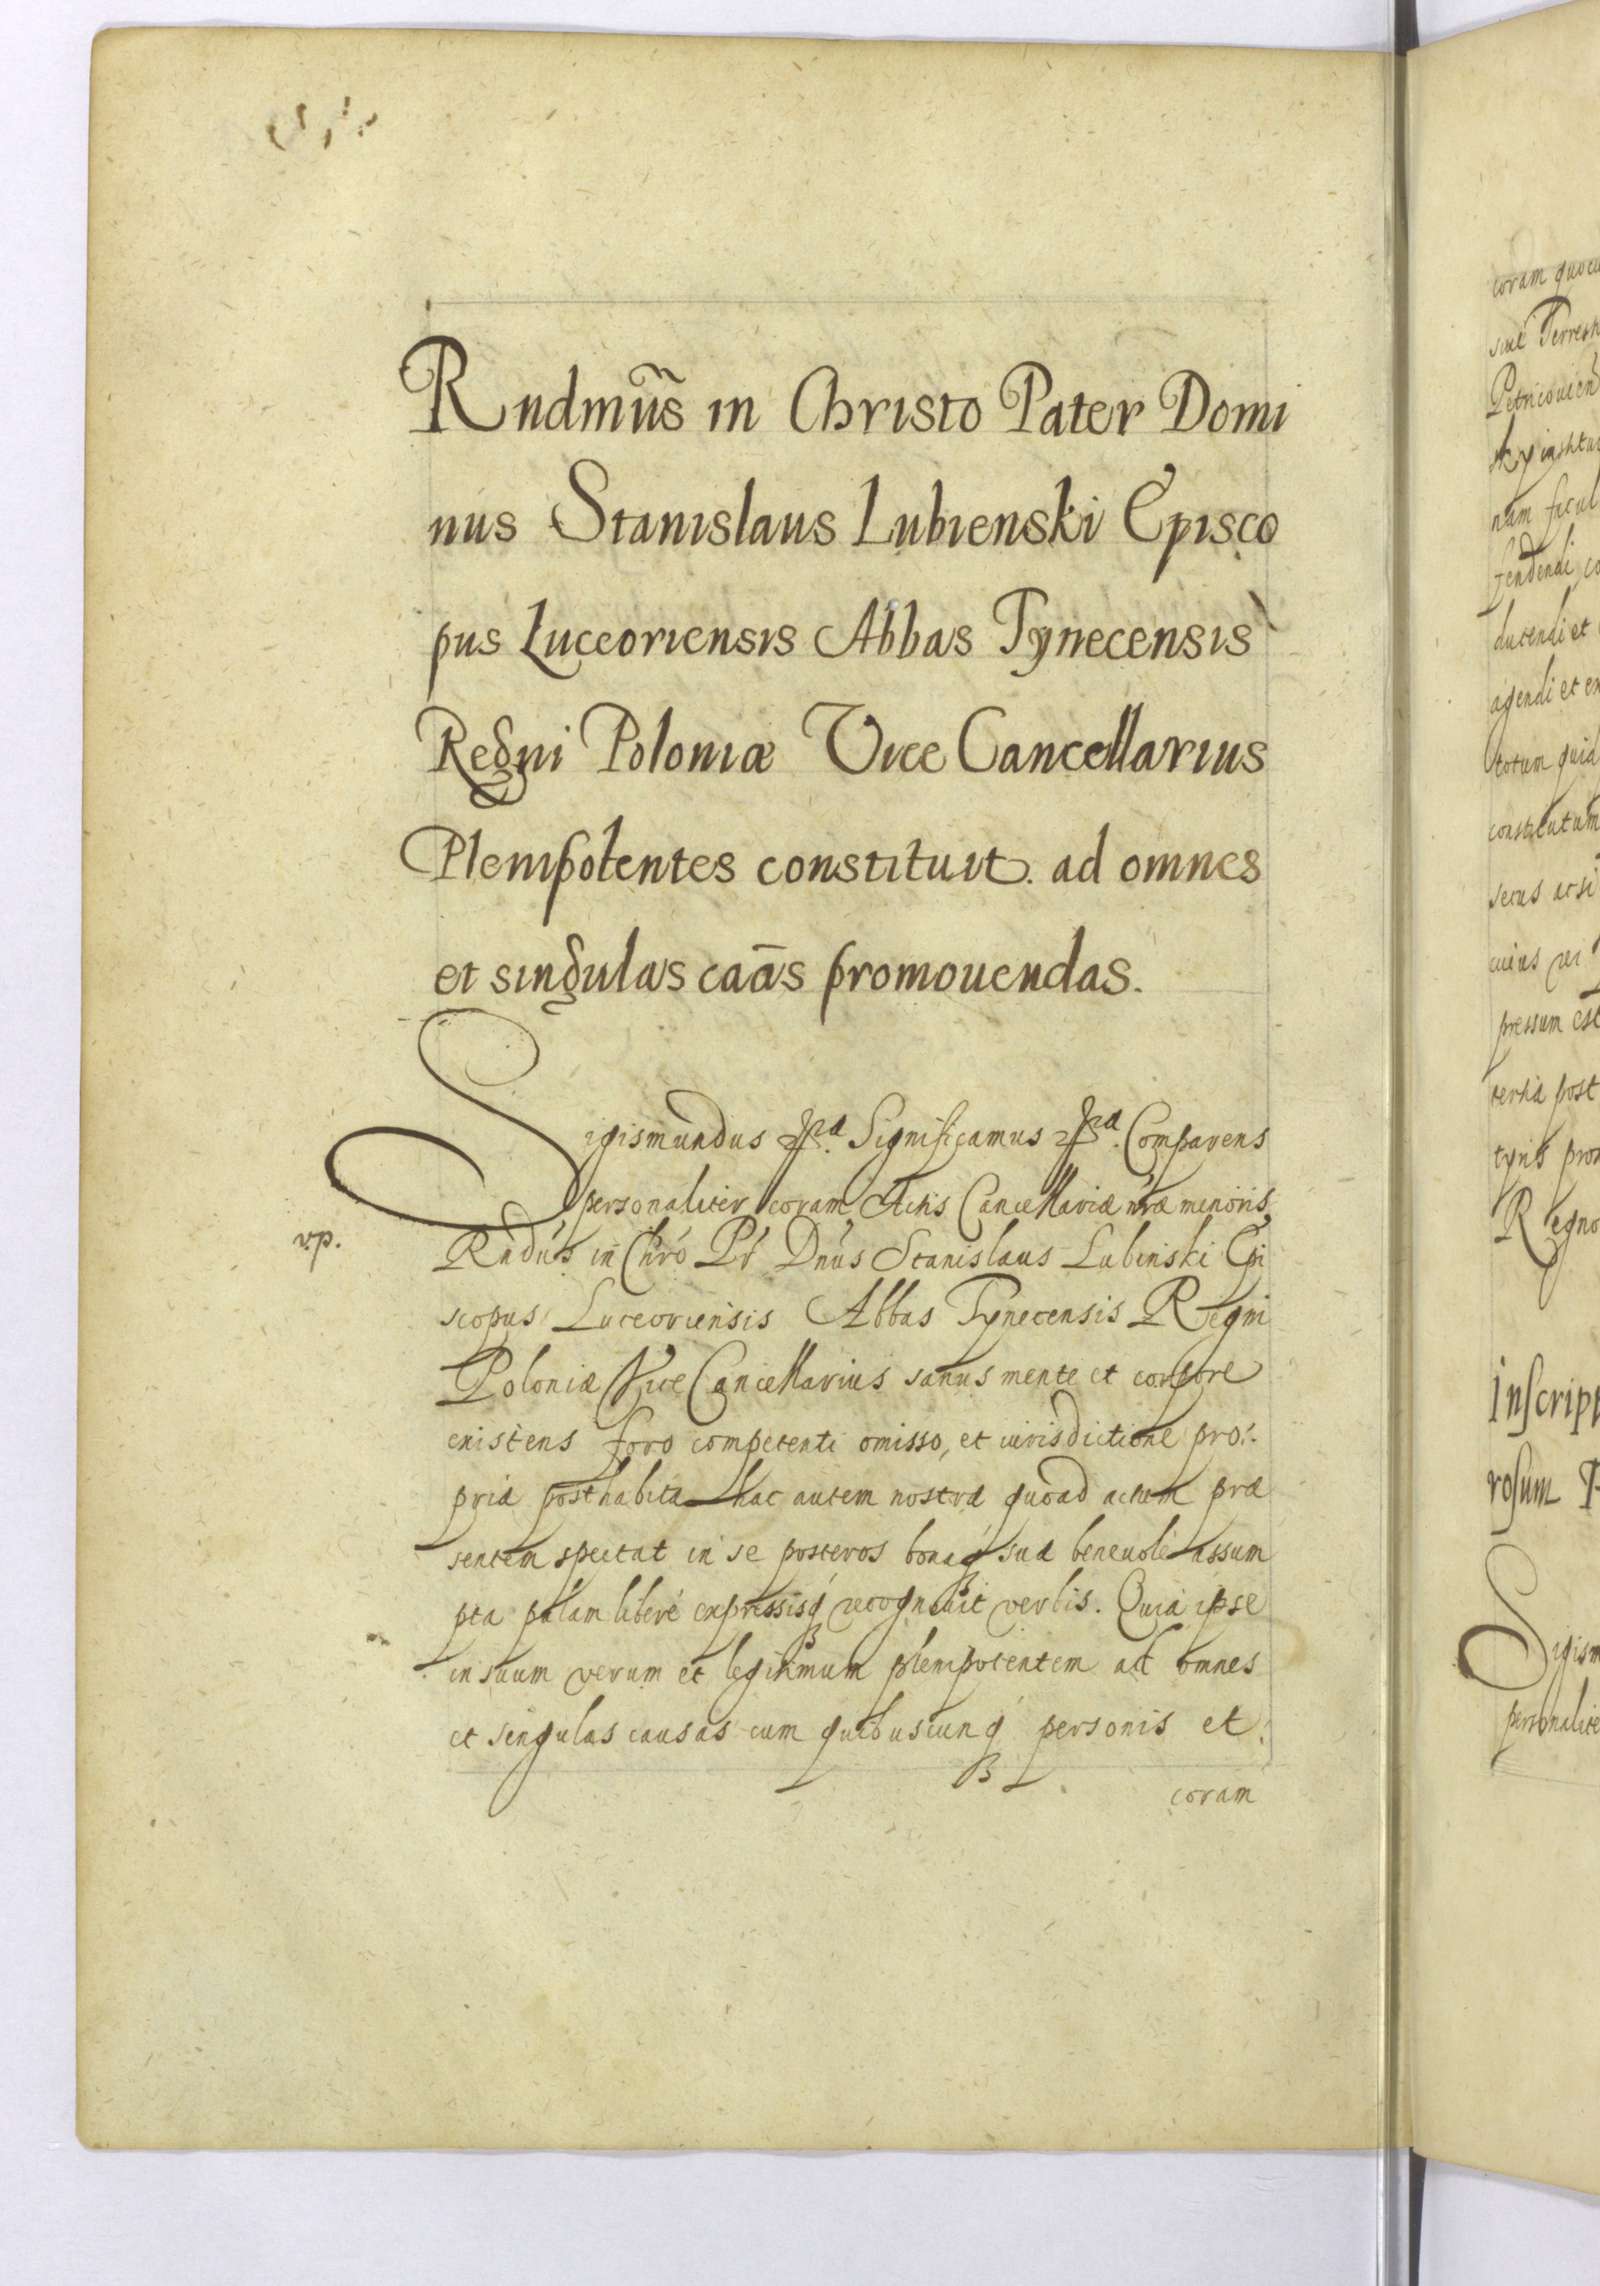 Rndmus̃ in Christo Pater Domi
nus Stanislaus Lubienski Episco
pus Luceoriensis Abbas Tynecensis
Regni Poloniæ Vice Cancellarius
Plenipotentes constituit. ad omnes
et singulas cãas promouendas.
Sigismundus Significamus Comparens
personaliter coram Actis Cancellariæ nræ minoris
Rndús in Chró Pr Dnús Stanislaus Lubinski Epi
scopus Luceoriensis Abbas Tynecensis Regni
Poloniæ Vice Cancellarius sanus mente et corpore
existens foro competenti omisso, et iurisdictione pro:
pria posthabita hac autem nostra quoad actum præ
sentem spectat in se posteros bonaq́ sua beneuole assum
pta palam liberé expressisq́ recognouit verbis. Quia ipse
in suum verum et legitimum plenipotentem ad omnes
et singulas causas cum quibuscunq́ personis et
coram
coram
Petricouien
agendi et
constitutum
secus acsi
cuius rei
pressum est
tertia post
Regno
Inscrip
rosum
Sigism
personalite